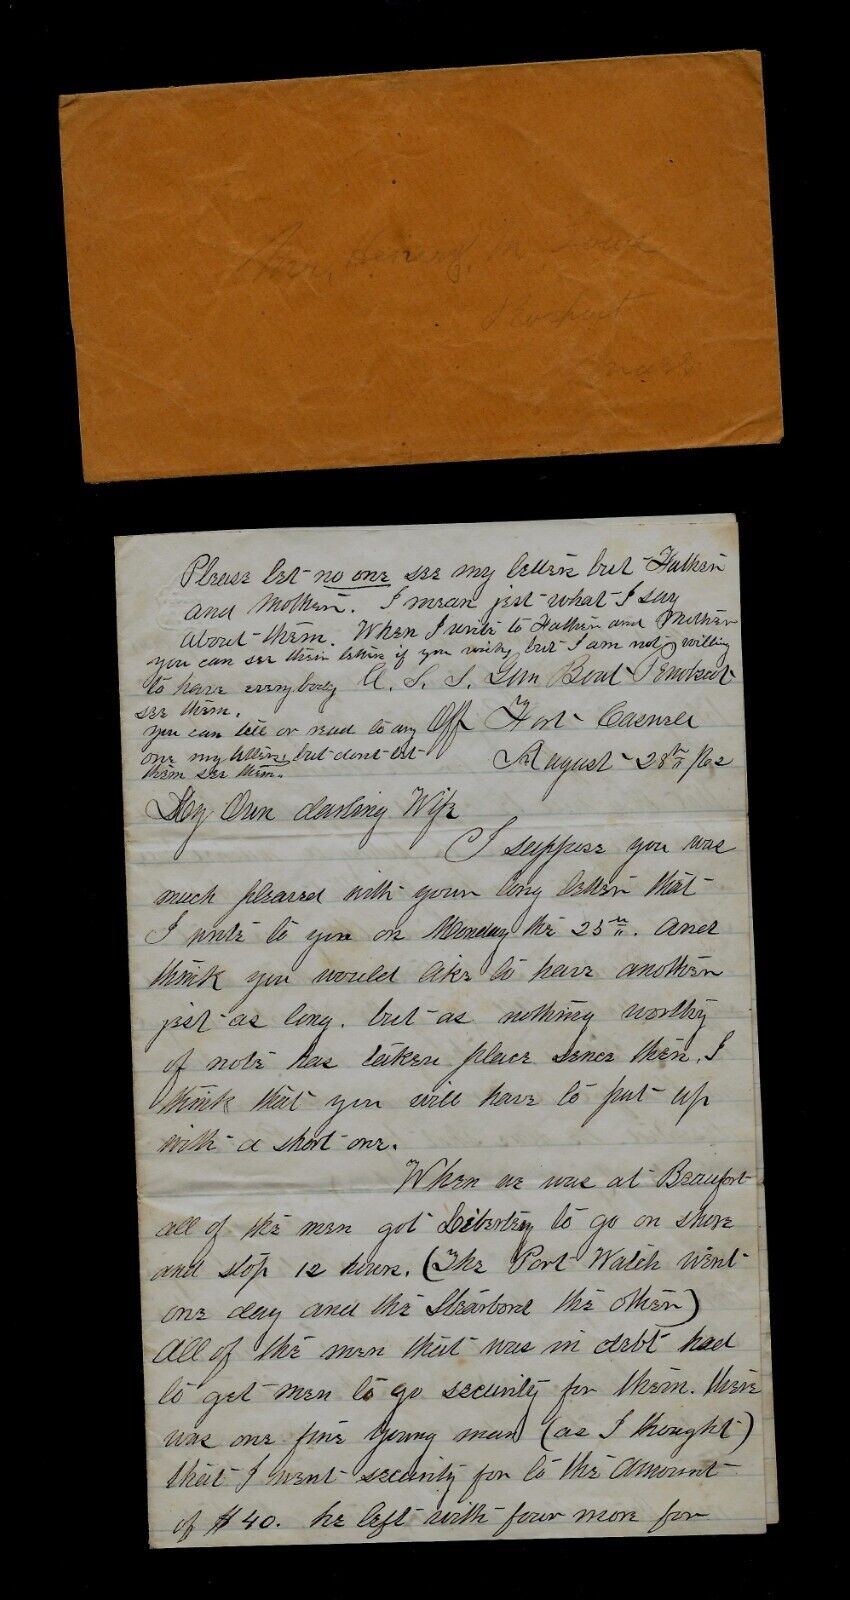 Mr, Henry, M, Lowe
Rockport
Mass
Please let no one see my letters but Father
and Mother. I mean jest what I say
About them. When I write to Father and Mother
you can see their letters if you wish, but I am not willing
to have everybody
see them.
you can tell or read to any
one my letters, but dont let
them see them.
U. S. S. Gun Boat Penobscot
Off Fort Caswell
August 28th /62
My Own darling Wife
I suppose you was
much pleased with your long letter that
I wrote to you on Monday the 25th. and
think you would like to have another
jest as long. but as nothing worthy
of note has taken place sence then, I
think that you will have to put up
with a short one.
When we was at Beaufort
all of the men got Liberty to go on shore
and stop 12 hours. (The Port Watch went
one day and the Starbord the other)
All of the men that was in debt had
to get men to go security for them. there
was one fine young man (as I thought)
that I went security for to the amount
of $40. he left with four more for